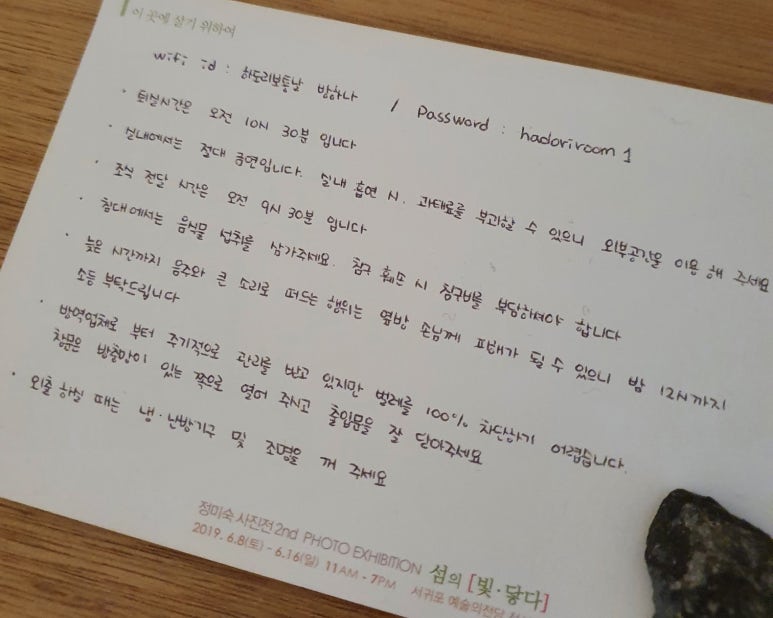 이 곳에 살기 위하여
wifi id : 하도리보통날 방하나 / Password : hadoriroom 1
· 퇴실시간은 오전 10시 30분 입니다
· 실내에서는 절대 금연입니다. 실내 흡연 시, 과태료를 부과할 수 있으니 외부공간을 이용 해 주세요
· 조식 전달 시간은 오전 9시 30분 입니다
· 침대에서는 음식물 섭취를 삼가주세요. 침구 훼손 시 침구비를 부담하셔야 합니다
· 늦은 시간까지 음주와 큰 소리로 떠드는 행위는 옆방 손님께 피해가 될 수 있으니 밤 12시까지
소등 부탁드립니다
· 방역업체로 부터 주기적으로 관리를 받고 있지만 벌레를 100% 차단하기 어렵습니다.
창문은 방충망이 있는 쪽으로 열어 주시고 출입문을 잘 닫아주세요
· 외출 하실 때는 냉·난방기구 및 조명을 꺼 주세요
정미숙 사진전 2nd PHOTO EXHIBITION 섬의 [빛·닿다]
2019. 6.8(토) - 6.16(일) 11AM - 7PM 서귀포 예술의전당